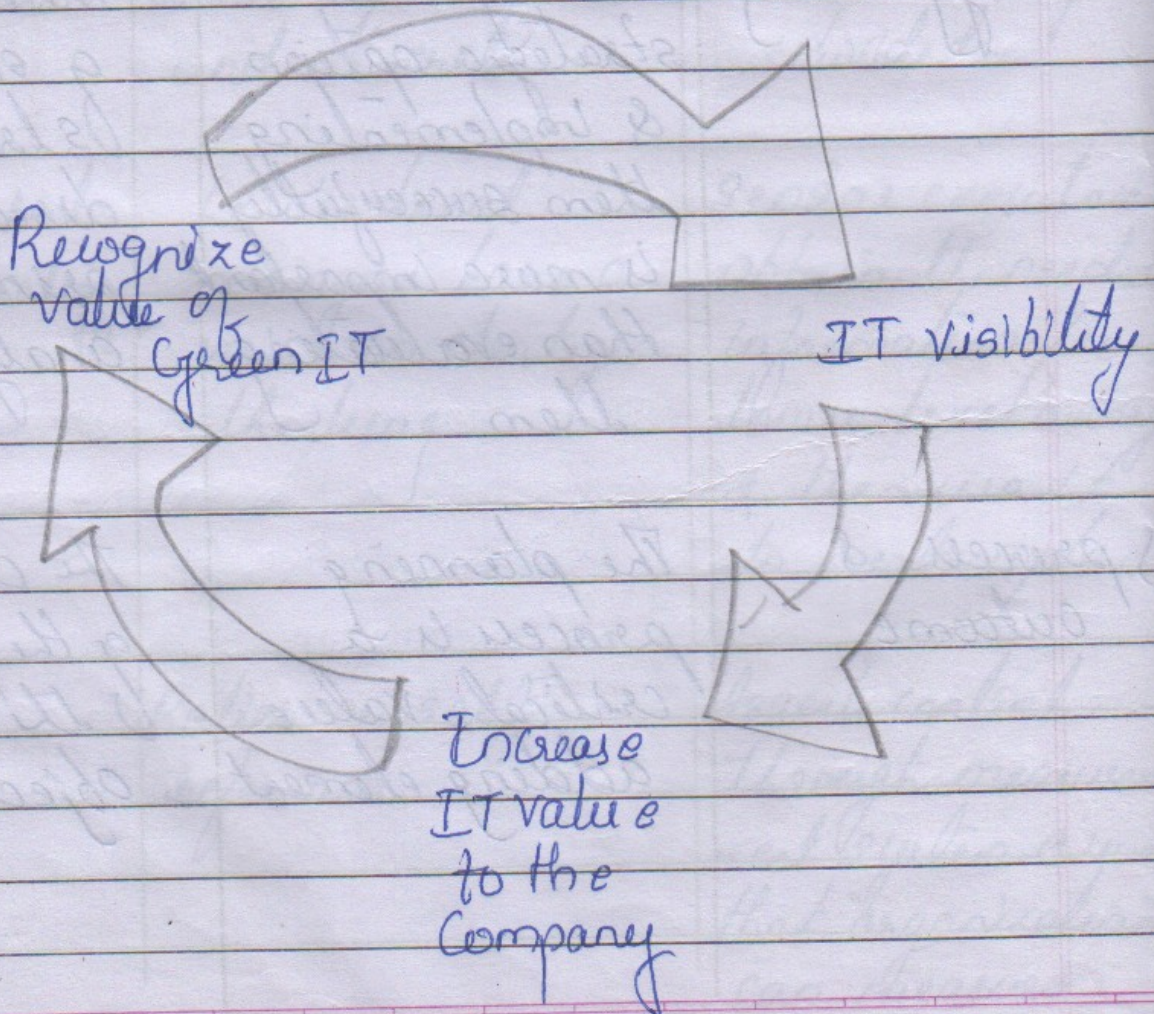 Recognize
value of
Green IT
IT visibility
Increase
IT value
to the
Company